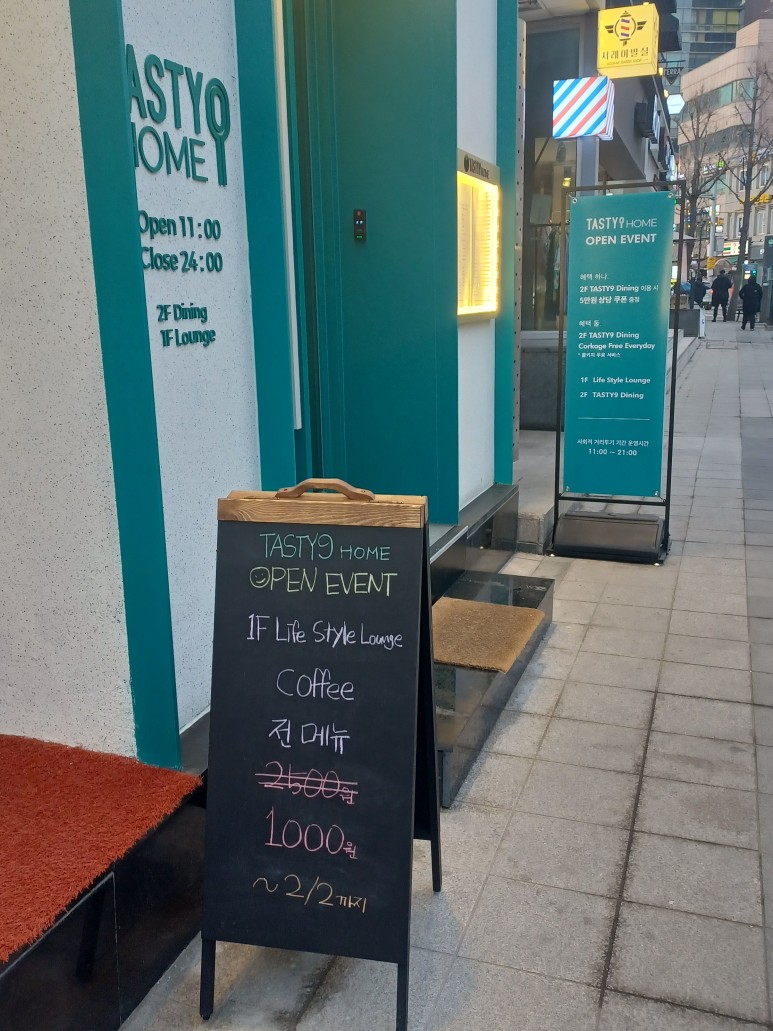 TASTY9
HOME
Open 11:00
Close 24:00
2F Dining
1F Lounge
TASTY9 HOME
OPEN EVENT
1F Life Style Lounge
Coffee
전 메뉴
2500원
1000원
~2/2까지
사레이발실
TASTY9 HOME
OPEN EVENT
혜택 하나
2F TASTY9 Dining 이용 시
5만원 상당 쿠폰 증정
혜택 둘
2F TASTY9 Dining
Corkage Free Everyday
* 콜키지 무료 서비스
1F Life Style Lounge
2F TASTY9 Dining
사회적 거리두기 기간 운영시간
11:00 – 21:00